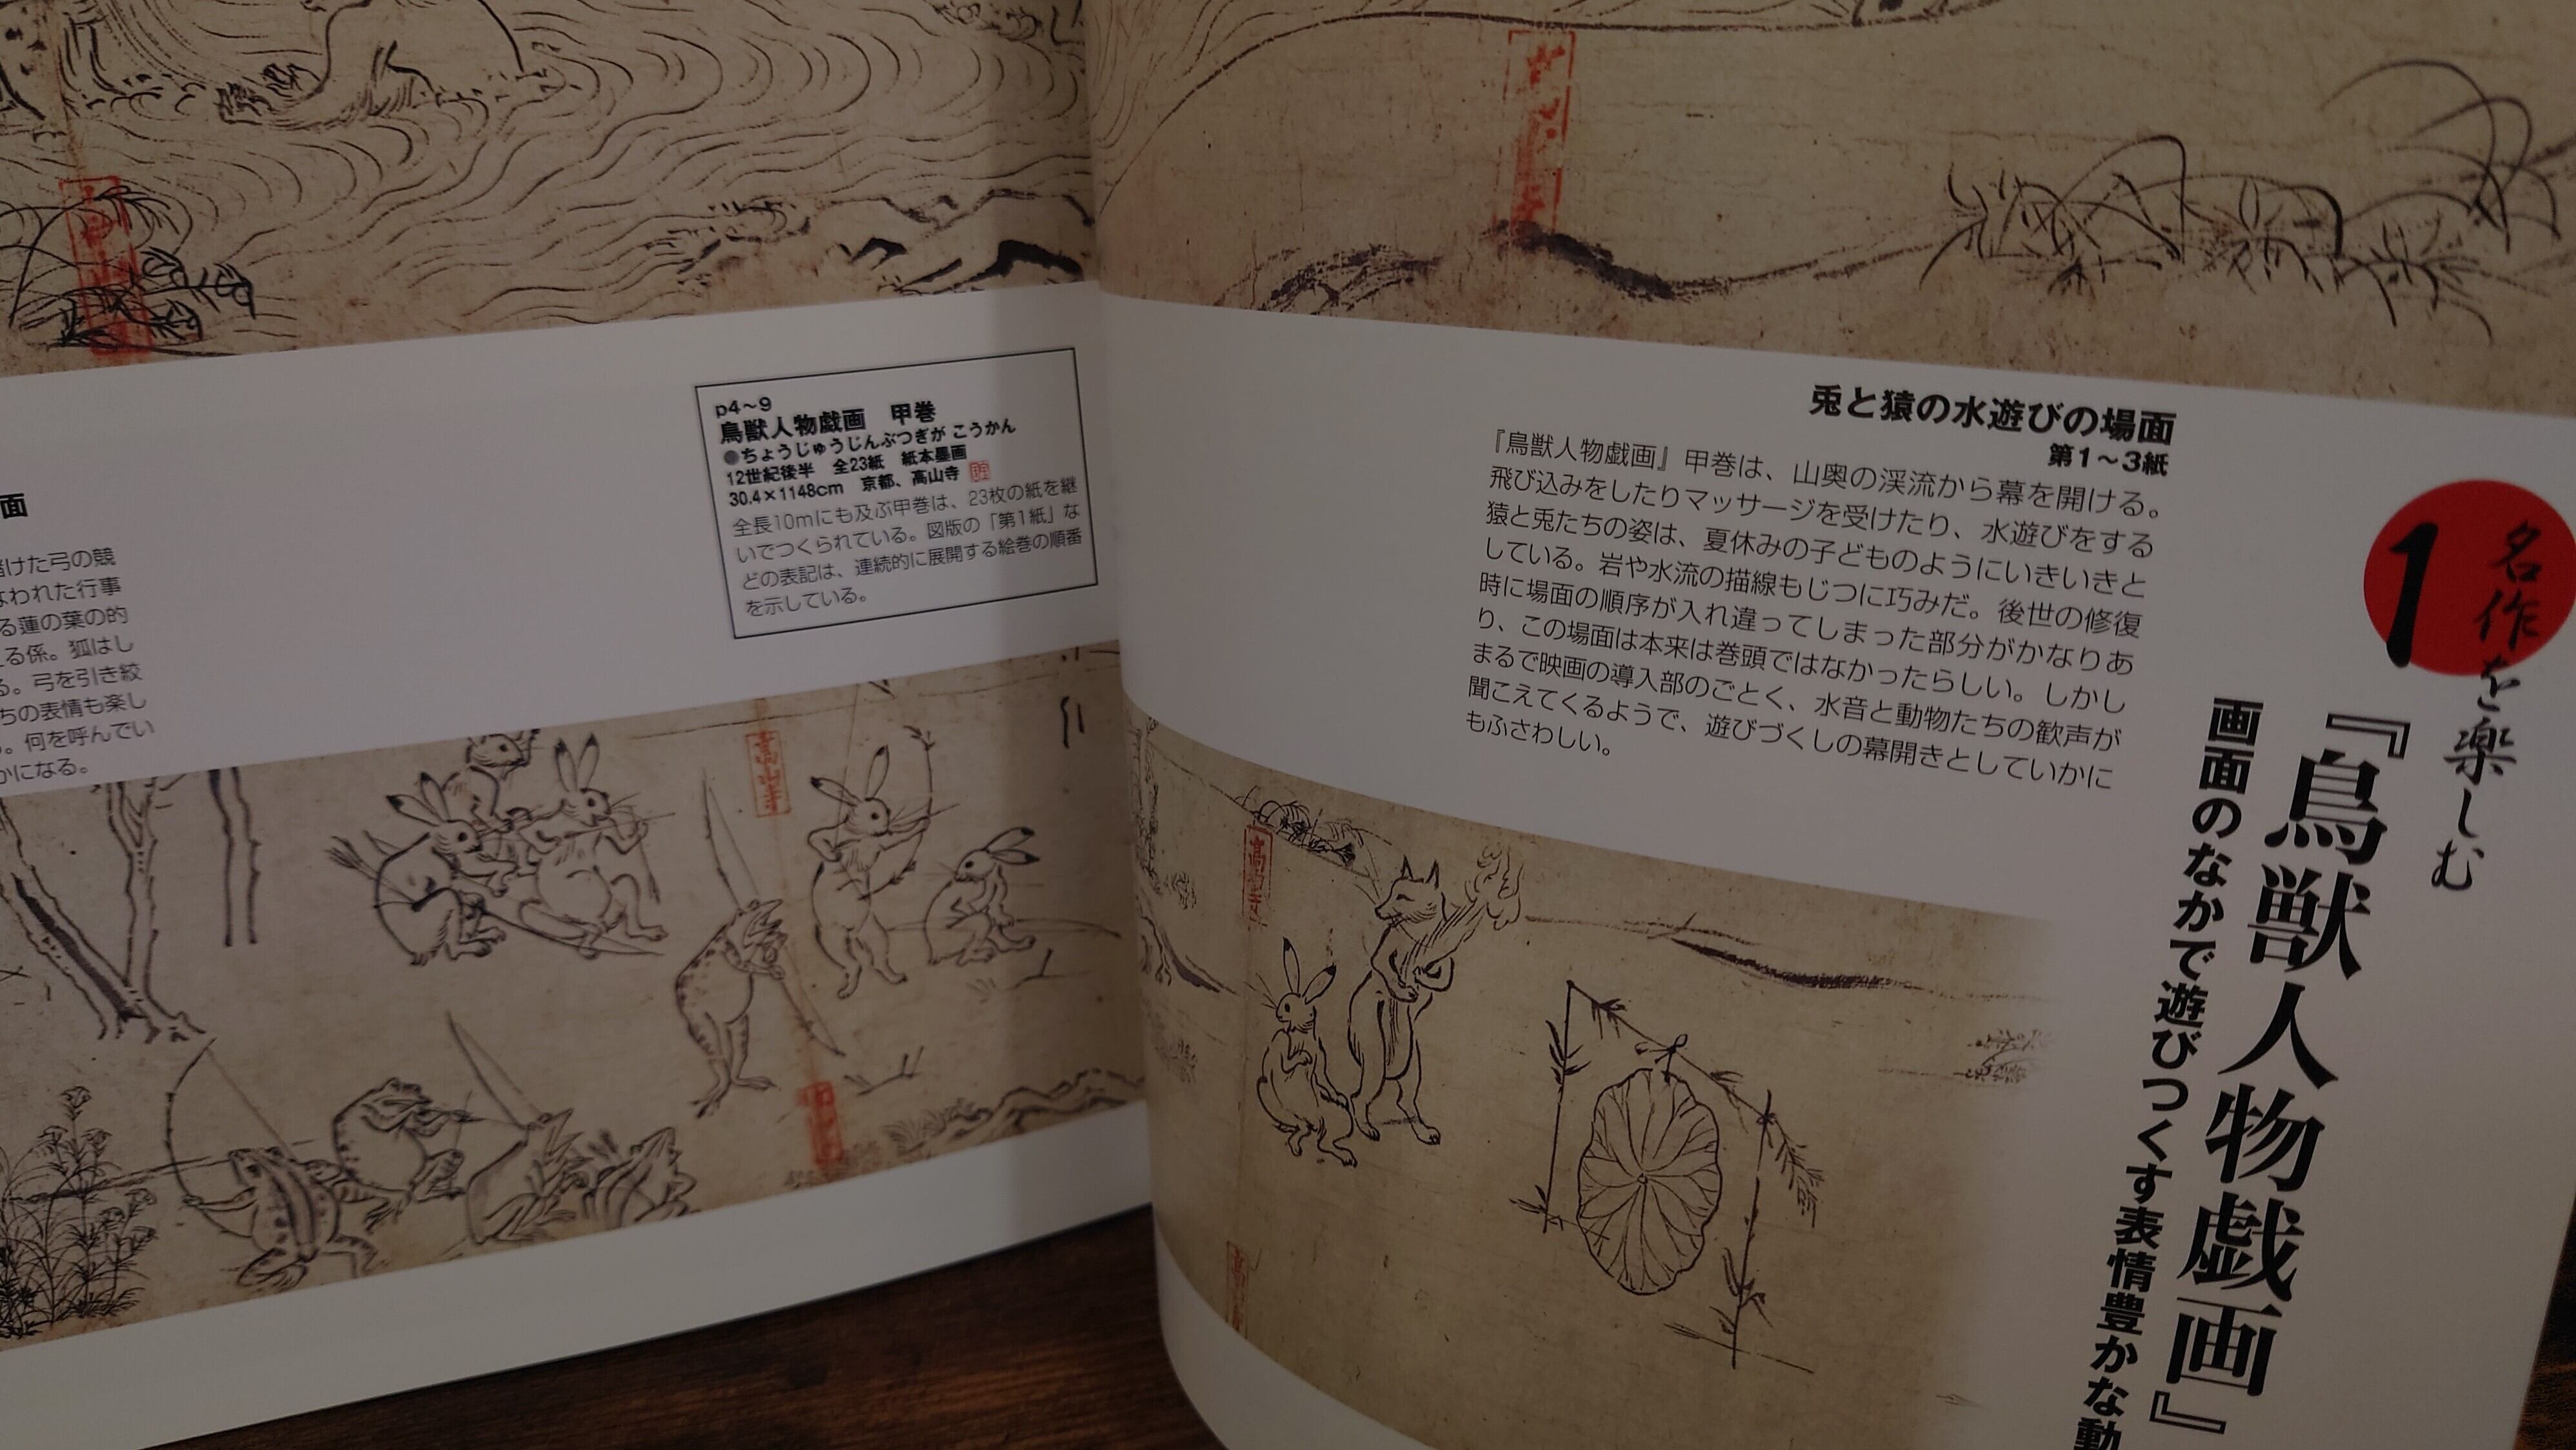 名作を楽しむ
1
『鳥獣人物戯画』
画面のなかで遊びつくす表情豊かな動
兎と猿の水遊びの場面
第1～3紙
『鳥獣人物戯画』甲巻は、山奥の渓流から幕を開ける。
飛び込みをしたりマッサージを受けたり、水遊びをする
猿と兎たちの姿は、夏休みの子どものようにいきいきと
している。岩や水流の描線もじつに巧みだ。後世の修復
時に場面の順序が入れ違ってしまった部分がかなりあ
り、この場面は本来は巻頭ではなかったらしい。しかし
まるで映画の導入部のごとく、水音と動物たちの歓声が
聞こえてくるようで、遊びづくしの幕開きとしていかに
もふさわしい。
p4～9
鳥獣人物戯画　甲巻
●ちょうじゅうじんぶつぎが こうかん
12世紀後半　全23紙　紙本墨画
30.4×1148cm　京都、高山寺
全長10mにも及ぶ甲巻は、23枚の紙を継
いでつくられている。図版の「第1紙」な
どの表記は、連続的に展開する絵巻の順番
を示している。
面
けた弓の競
われた行事
る蓮の葉の的
る係。狐はし
る。弓を引き絞
ちの表情も楽し
。何を呼んでい
かになる。
高山寺
高山寺